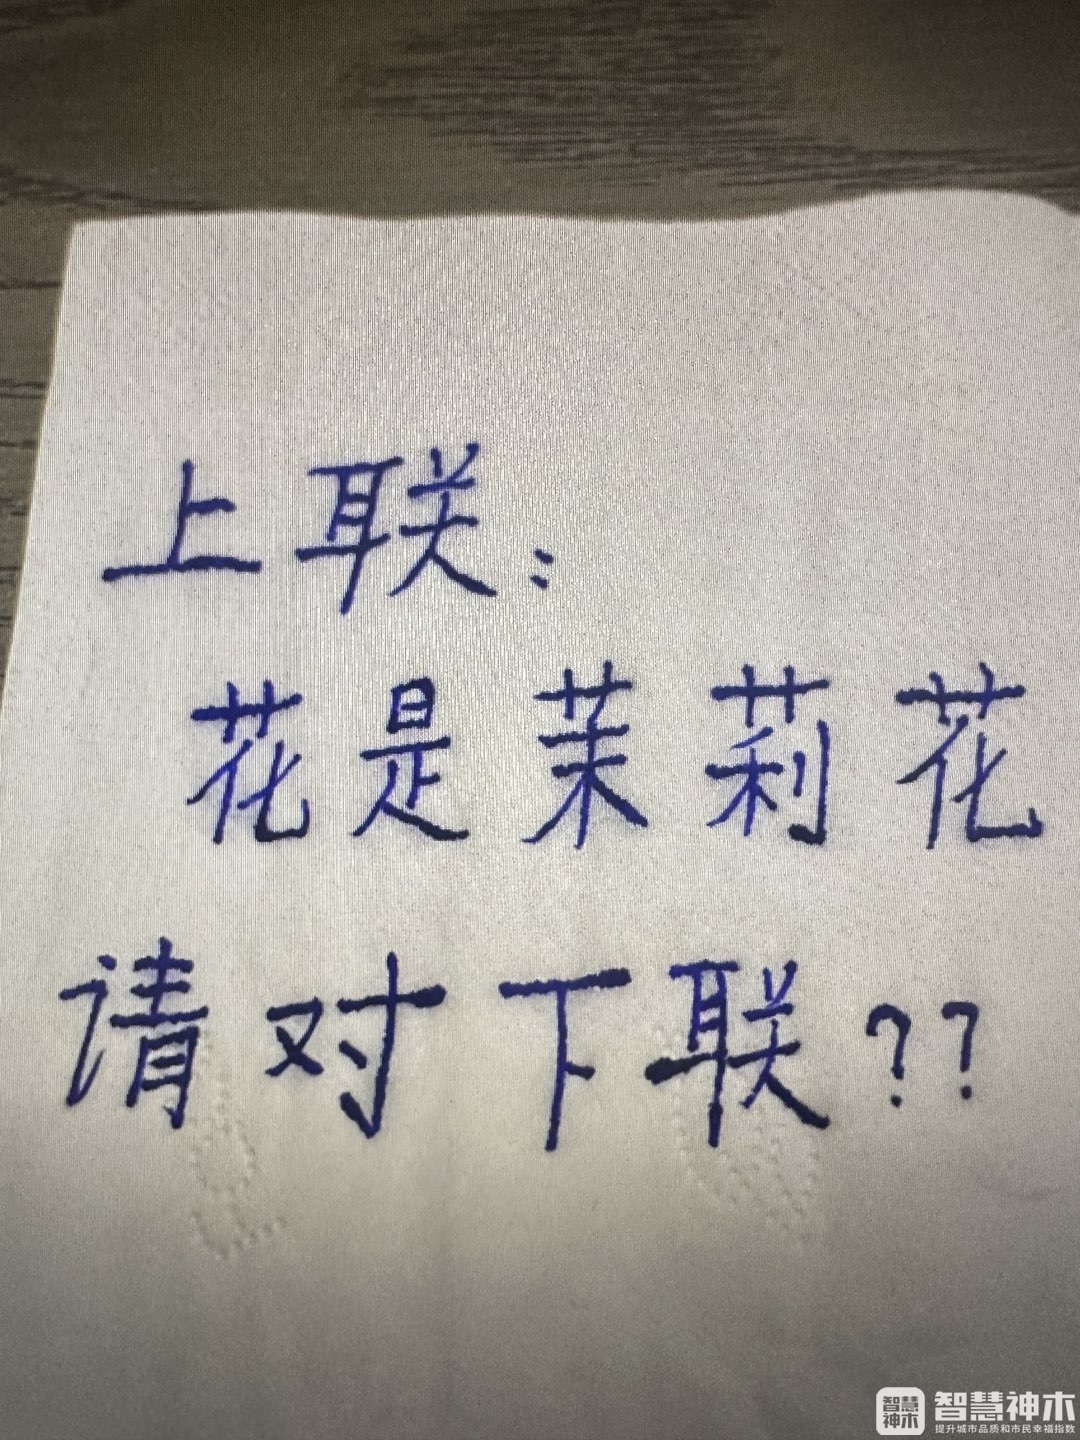 上联:
花是茉莉花
请对下联??
智慧神木
智慧神木
提升城市品质和市民幸福指数